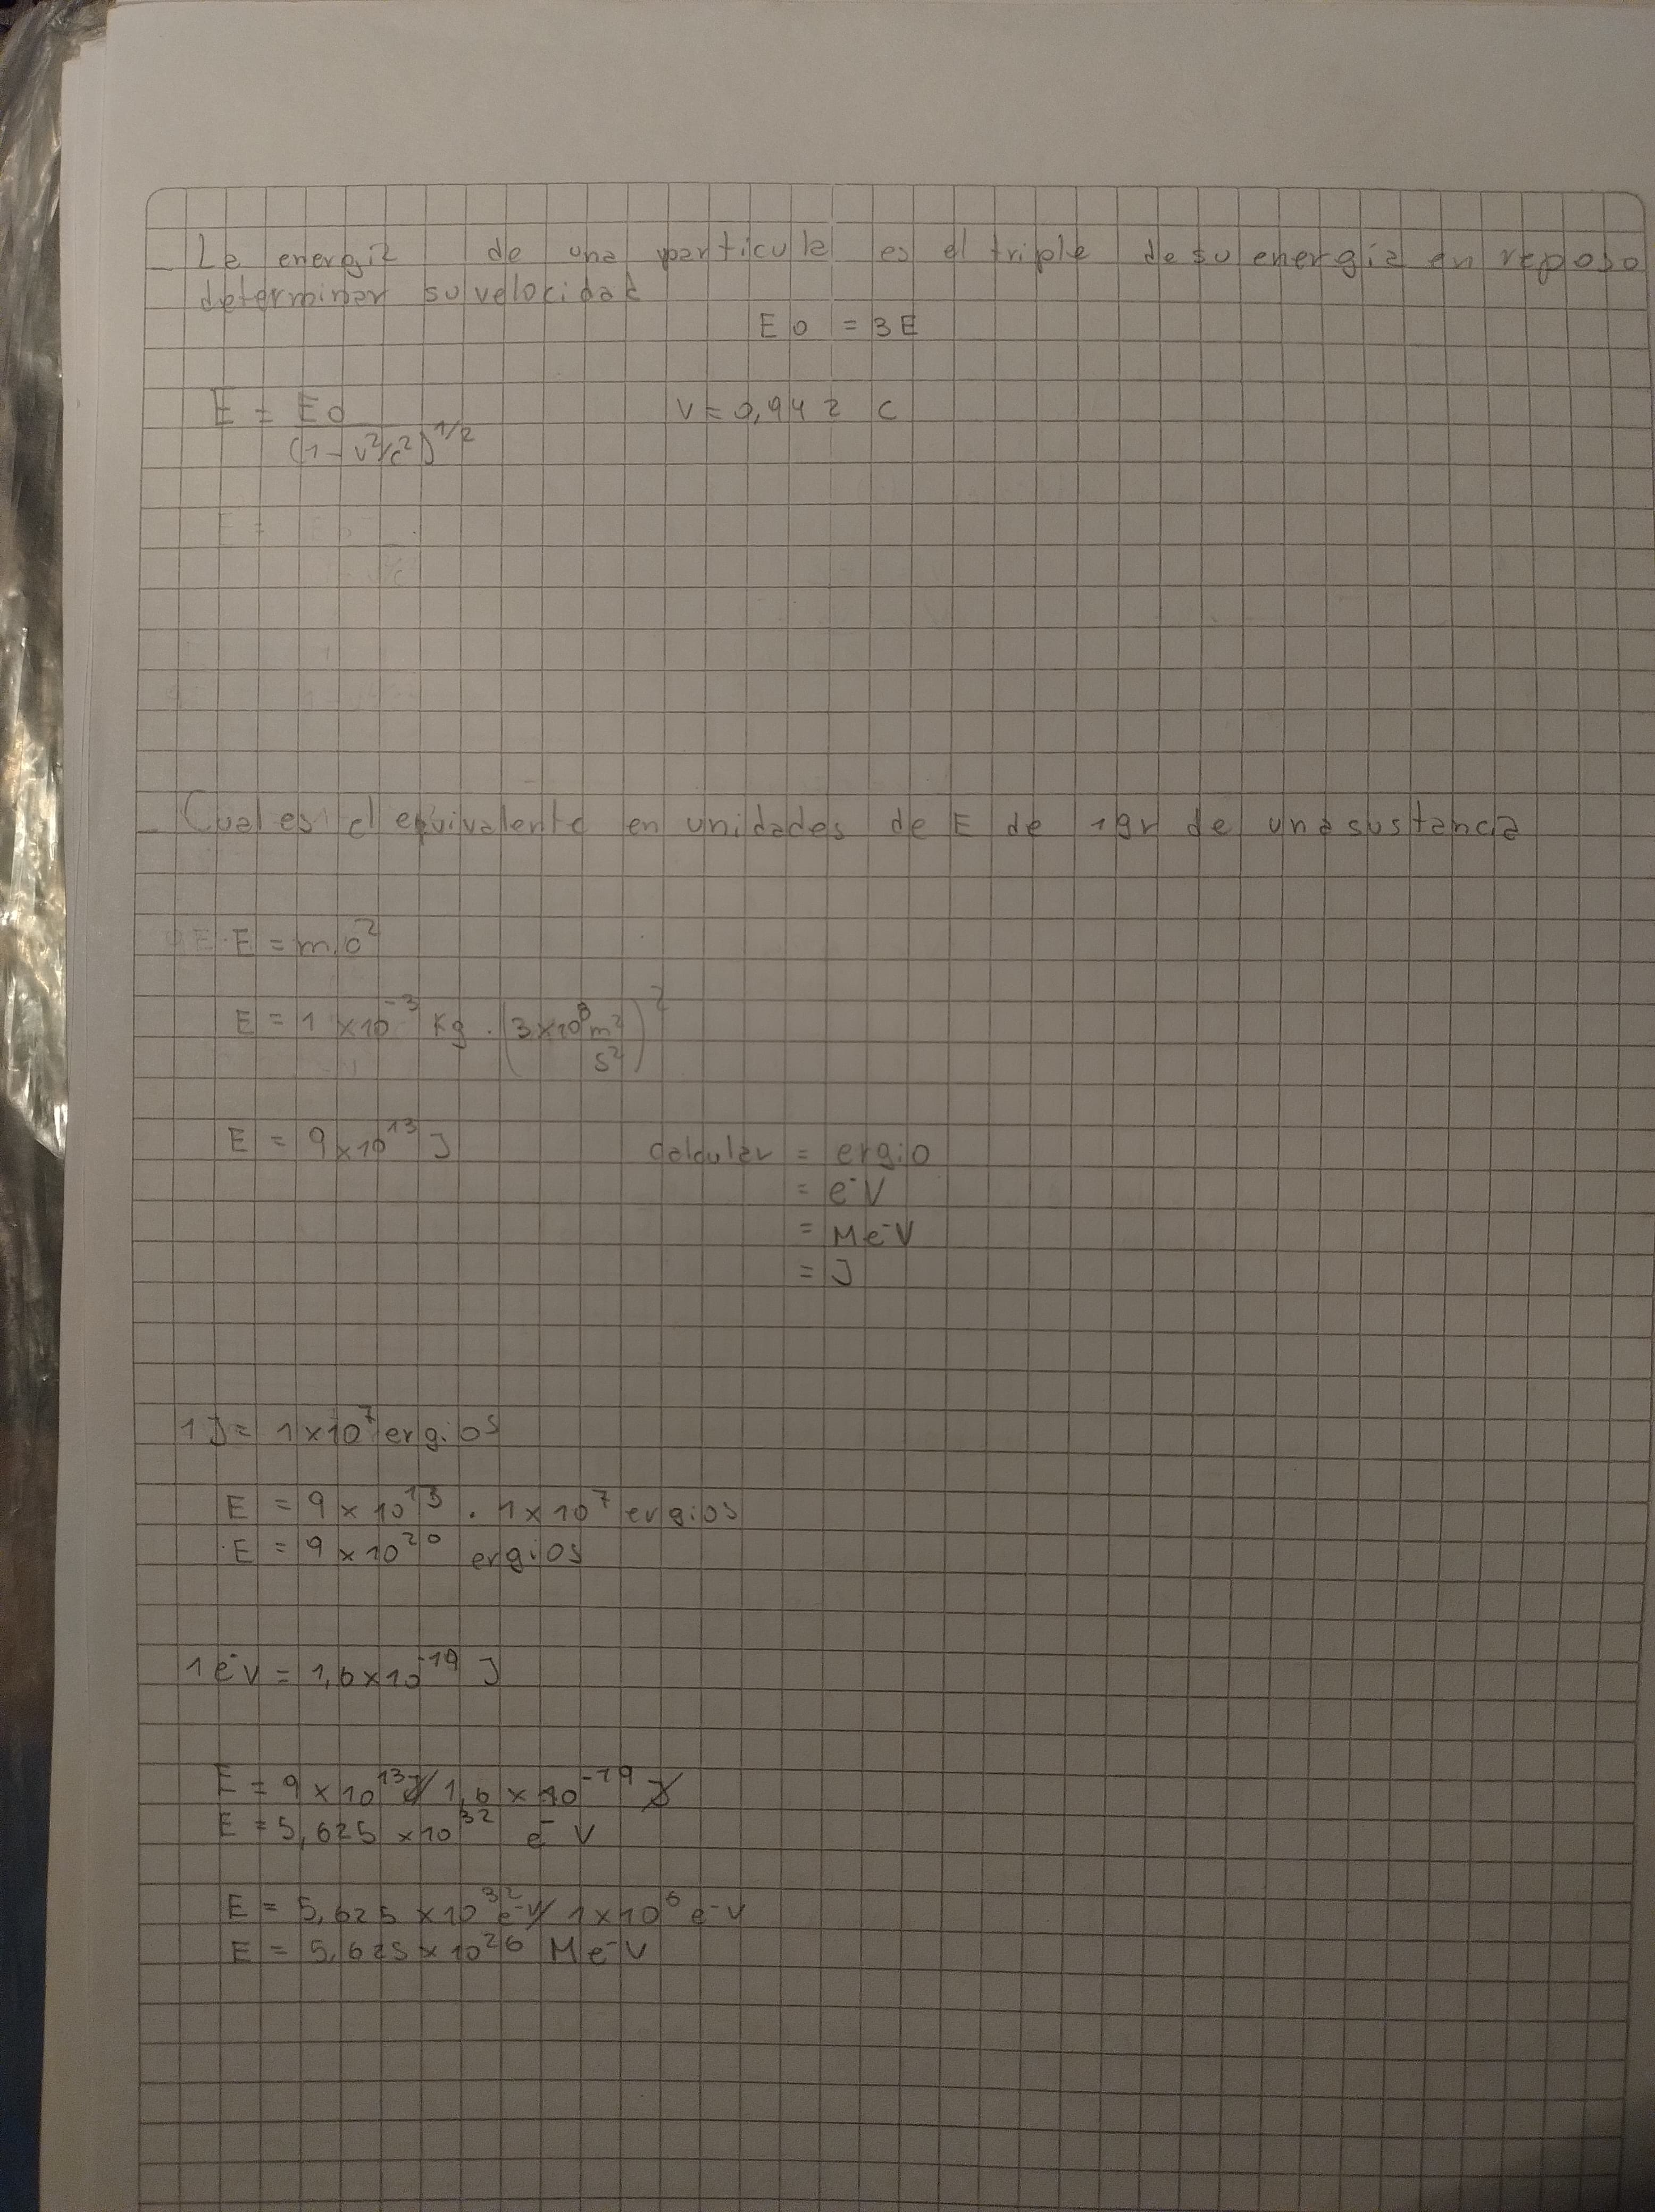 - La energia de una particula es el triple de su energia en reposo
determinar su velocidad
Eo = 3E
E = Eo v = 0,942 c
(1 - v²/c²)^1/2
- Cual es el equivalente en unidades de E de 1gr de una sustancia
E = m.c²
E = 1 x10⁻³ Kg . (3x10⁸ m²
s²)²
E = 9x10¹³ J calcular = ergio
= e⁻V
= Me⁻V
= J
1J = 1x10⁷ ergios
E = 9 x 10¹³ . 1x10⁷ ergios
E = 9 x 10²⁰ ergios
1 e⁻v = 1,6x10⁻¹⁹ J
E = 9 x 10¹³ J / 1,6 x 10⁻¹⁹ J
E = 5,625 x10³² e⁻ V
E = 5,625 x10³² e⁻v / 1x10⁶ e⁻v
E = 5,625x10²⁶ Me⁻V